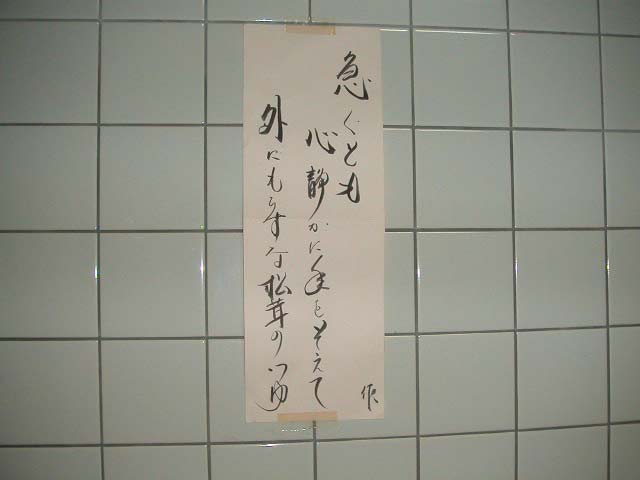 急ぐとも
心静かに手をそえて
外にもらすな松茸のつゆ
作